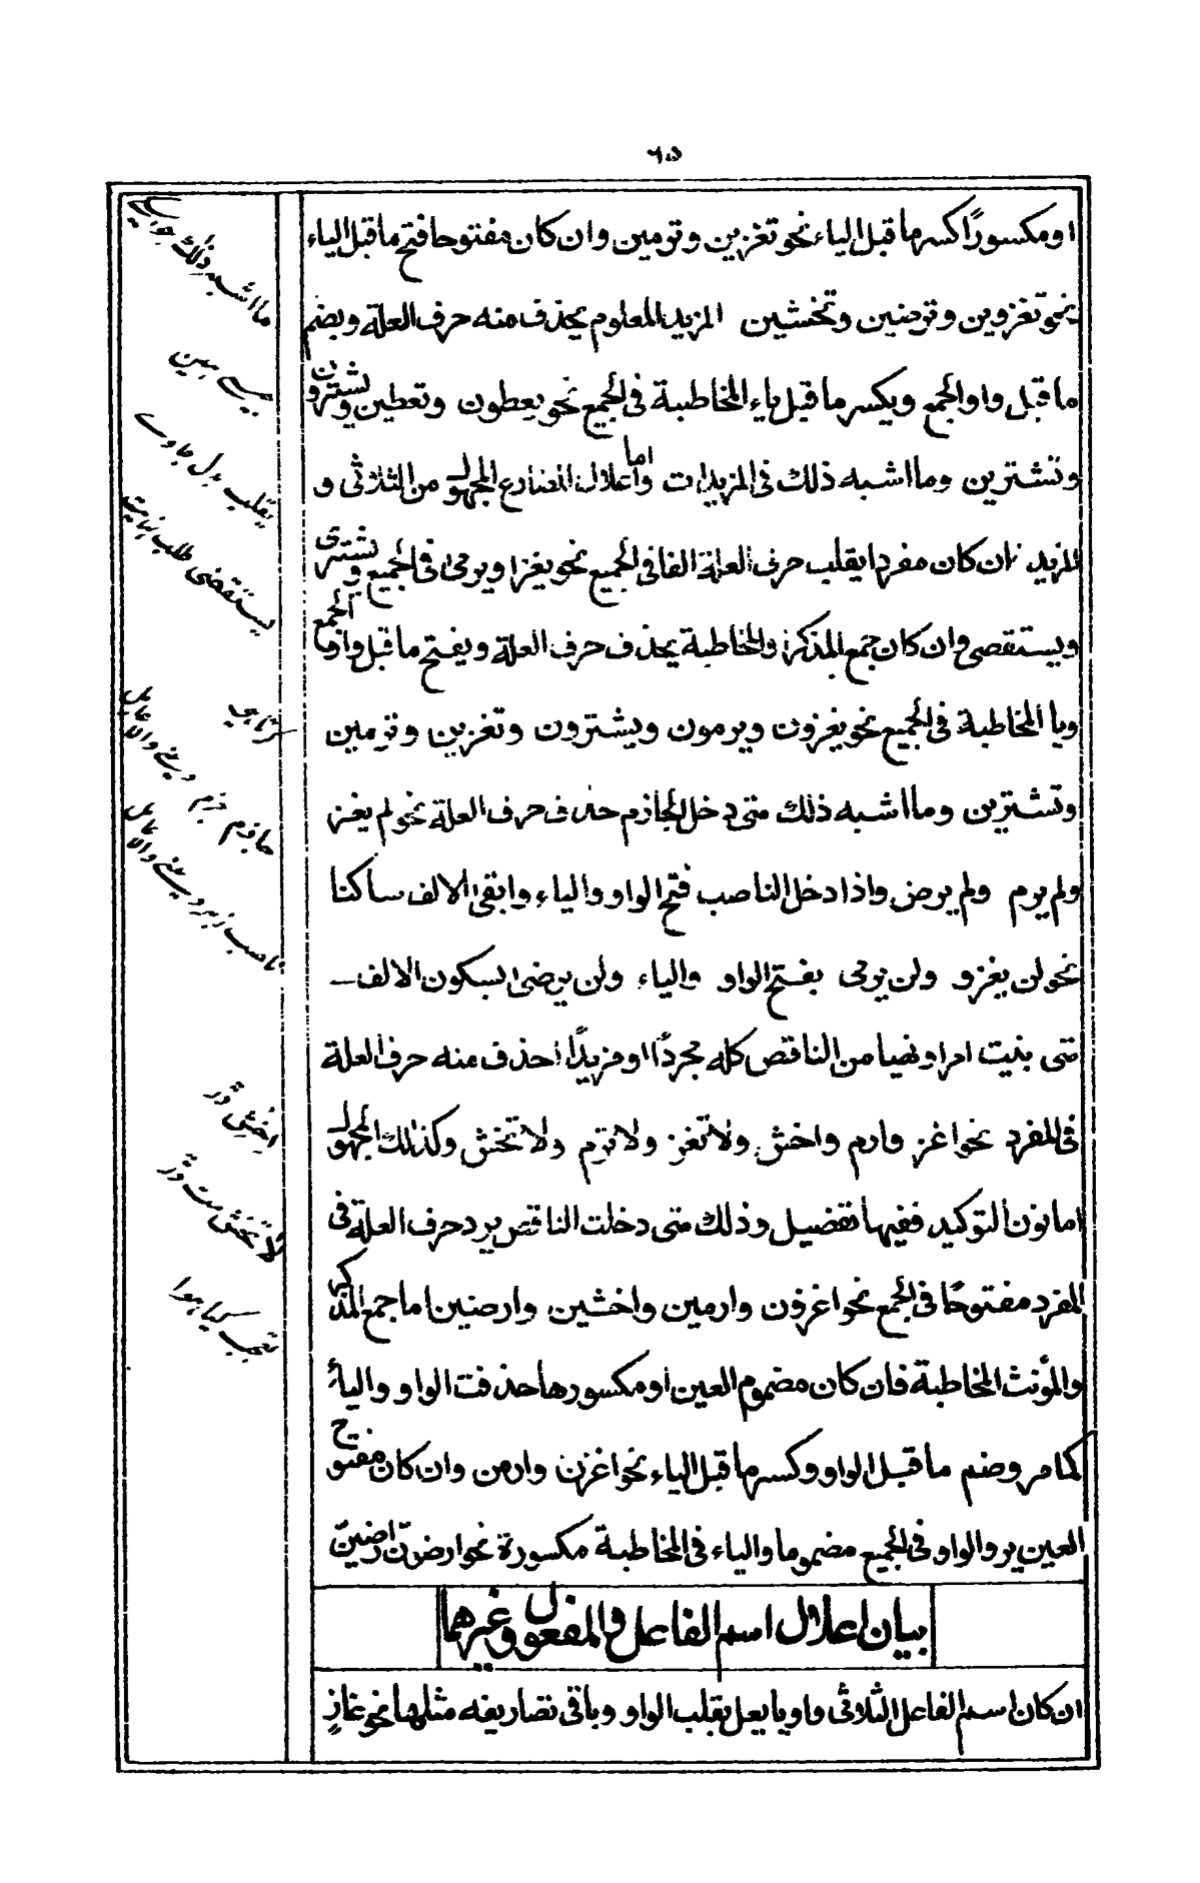 ٦٥
او مكسورًا كسر ما قبل الياء نحو تغزين وترمين وان كان مفتوحا فتح ما قبل الياء
نحو تغزوين وترضين وتخشين المزيد المعلوم يحذف منه حرف العلة ويضم
ما قبل واو الجمع ويكسر ما قبل ياء المخاطبة فى الجميع نحو يعطون وتعطين ويشترون
وتشترين وما اشبه ذلك فى المزيدات واما اعلال المضارع المجهول من الثلاثى و
المزيد ان كان مفردا يقلب حرف العلة الفا فى الجميع نحو يغزا ويرمى فى الجميع ويشترى
ويستقصى وان كان جمع المذكر والمخاطبة يحذف حرف العلة ويفتح ما قبل واو الجمع
ويا المخاطبة فى الجميع نحو يغزون ويرمون ويشترون وتغزين وترمين
وتشترين وما اشبه ذلك متى دخل الجازم حذف حرف العلة نحو لم يغز
ولم يرم ولم يرض واذا دخل الناصب فتح الواو والياء وابقى الالف ساكنا
نحو لن يغزو ولن يرمى بفتح الواو والياء ولن يرضى بسكون الالف
متى بنيت امرا ونهيا من الناقص كله مجردًا او مزيدًا احذف منه حرف العلة
فى المفرد نحو اغز وارم واخش ولا تغز ولا ترم ولا تخش وكذلك المجهول
اما نون التوكيد ففيها تفضيل وذلك متى دخلت الناقص يرد حرف العلة فى
المفرد مفتوحًا فى الجمع نحو اغزون وارمين واخشين وارضين اما جمع المذكر
والمؤنث المخاطبة فان كان مضموم العين او مكسورها حذفت الواو والياء
كما مر وضم ما قبل الواو وكسر ما قبل الياء نحو اغزن وارمن وان كان مفتوح
العين ير والواو فى الجميع مضموما والياء فى المخاطبة مكسورة نحو ارضونّ ارضينّ
بيان اعلال اسم الفاعل والمفعول وغيرهما
ان كان اسم الفاعل الثلاثى واويا يعل بقلب الواو وباقى تصاريفه مثلها نحو غازٍ
ما اشبه ذلك جو اسکے
سے ہیں
یقلب بدل جاوے
یستقضی طلب نہایت
کرتا ہے
جازم جزم دینے والا عامل
ناصب زبر دینے والا عامل
اخش ڈر
لا تخش مت ڈر